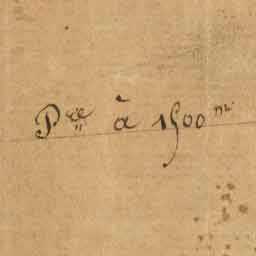 P^ce à 1500^m.